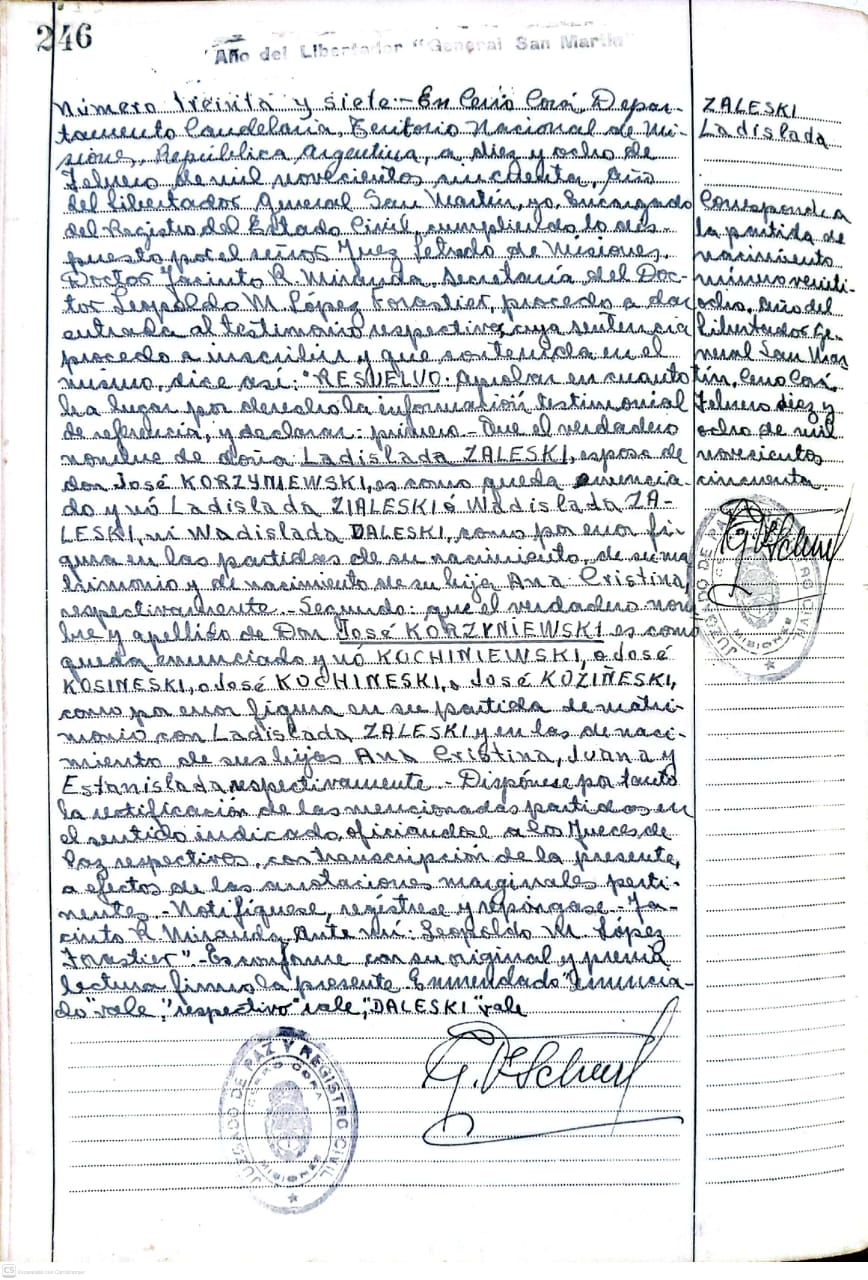 246
Año del Libertador "General San Martín"
Número treinta y siete.- En Cerro Corá, Depar-
tamento Candelaria, Territorio Nacional de Mi-
siones, República Argentina, a diez y ocho de
Febrero de mil novecientos cincuenta, Año
del Libertador General San Martín, yo Encargado
del Registro del Estado Civil, cumpliendo lo dis-
puesto por el señor Juez Letrado de Misiones,
Doctor Jacinto R. Miranda, Secretaría del Doc-
tor Leopoldo M. López Forastier, procedo a dar
entrada al testimonio respectivo, cuya sentencia
procedo a inscribir y que contenida en el
mismo, dice así: "RESUELVO: Aprobar en cuanto
ha lugar por derecho la información testimonial
de referencia, y declarar: primero.- Que el verdadero
nombre de doña Ladislada ZALESKI, esposa de
don José KORZYNIEWSKI, es como queda enuncia-
do y nó Ladislada ZIALESKI ó Wadislada ZA-
LESKI, ni Wadislada DALESKI, como por error fi-
gura en las partidas de su nacimiento, de su ma-
trimonio y de nacimiento de su hija Ana Cristina,
respectivamente.- Segundo: que el verdadero nom-
bre y apellido de Don José KORZYNIEWSKI es como
queda enunciado y nó KOCHINIEWSKI, o José
KOSINESKI, o José KOCHINESKI, o José KOZIÑESKI,
como por error figura en su partida de matri-
monio con Ladislada ZALESKI y en las de naci-
miento de sus hijas Ana Cristina, Juana y
Estanislada respectivamente.- Dispónese por tanto
la rectificación de las mencionadas partidas en
el sentido indicado, oficiándose a los Jueces de
Paz respectivos, con transcripción de la presente,
a efectos de las anotaciones marginales perti-
nentes.- Notifíquese, regístrese y repóngase.- Ja-
cinto R. Miranda. Ante mí: Leopoldo M. López
Forastier".- Es conforme con su original y previa
lectura firmo la presente. Enmendado "enuncia-
do" vale, "respectivo" vale, "DALESKI" vale
JUZGADO DE PAZ Y REGISTRO CIVIL
CERRO CORA
MISIONES
ZALESKI
Ladislada
Corresponde a
la partida de
nacimiento
número veinti-
ocho, Año del
Libertador Ge-
neral San Mar-
tín, Cerro Corá,
Febrero diez y
ocho de mil
novecientos
cincuenta.
JUZGADO DE PAZ
MISIONES
CS Escaneado con CamScanner